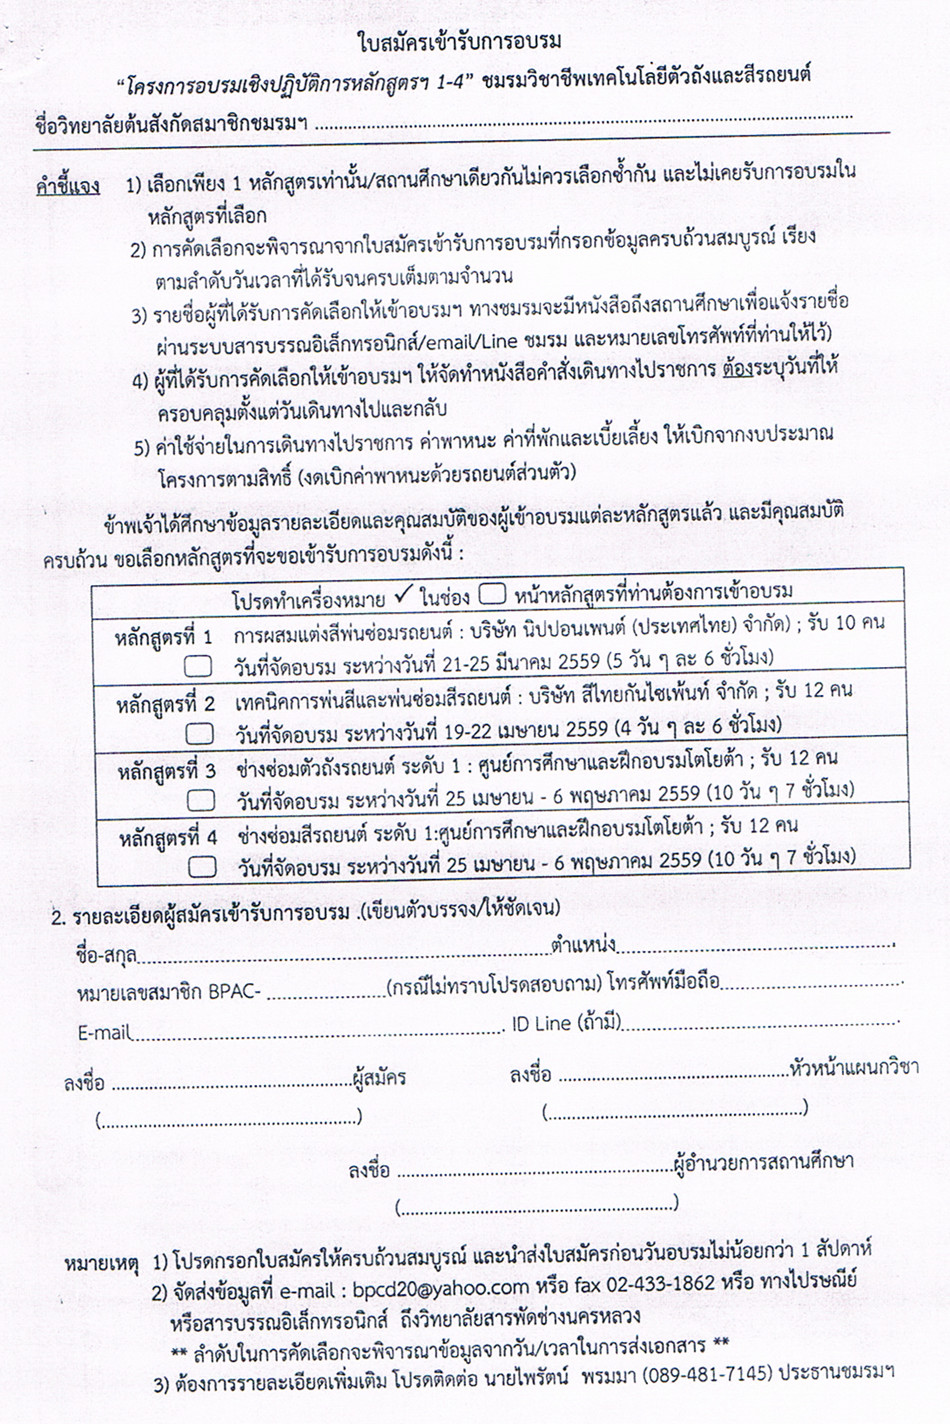 ใบสมัครเข้ารับการอบรม
“โครงการอบรมเชิงปฏิบัติการหลักสูตรฯ 1-4” ชมรมวิชาชีพเทคโนโลยีตัวถังและสีรถยนต์
ชื่อวิทยาลัยต้นสังกัดสมาชิกชมรมฯ ..........................................................................................
คำชี้แจง 1) เลือกเพียง 1 หลักสูตรเท่านั้น/สถานศึกษาเดียวกันไม่ควรเลือกซ้ำกัน และไม่เคยรับการอบรมใน
หลักสูตรที่เลือก
2) การคัดเลือกจะพิจารณาจากใบสมัครเข้ารับการอบรมที่กรอกข้อมูลครบถ้วนสมบูรณ์ เรียง
ตามลำดับวันเวลาที่ได้รับจนครบเต็มตามจำนวน
3) รายชื่อผู้ที่ได้รับการคัดเลือกให้เข้าอบรมฯ ทางชมรมจะมีหนังสือถึงสถานศึกษาเพื่อแจ้งรายชื่อ
ผ่านระบบสารบรรณอิเล็กทรอนิกส์/email/Line ชมรม และหมายเลขโทรศัพท์ที่ท่านให้ไว้)
4) ผู้ที่ได้รับการคัดเลือกให้เข้าอบรมฯ ให้จัดทำหนังสือคำสั่งเดินทางไปราชการ ต้องระบุวันที่ให้
ครอบคลุมตั้งแต่วันเดินทางไปและกลับ
5) ค่าใช้จ่ายในการเดินทางไปราชการ ค่าพาหนะ ค่าที่พักและเบี้ยเลี้ยง ให้เบิกจากงบประมาณ
โครงการตามสิทธิ์ (งดเบิกค่าพาหนะด้วยรถยนต์ส่วนตัว)
ข้าพเจ้าได้ศึกษาข้อมูลรายละเอียดและคุณสมบัติของผู้เข้าอบรมแต่ละหลักสูตรแล้ว และมีคุณสมบัติ
ครบถ้วน ขอเลือกหลักสูตรที่จะขอเข้ารับการอบรมดังนี้ :
โปรดทำเครื่องหมาย ✓ ในช่อง หน้าหลักสูตรที่ท่านต้องการเข้าอบรม
หลักสูตรที่ 1 การผสมแต่งสีพ่นซ่อมรถยนต์ : บริษัท นิปปอนเพนต์ (ประเทศไทย) จำกัด) ; รับ 10 คน
วันที่จัดอบรม ระหว่างวันที่ 21-25 มีนาคม 2559 (5 วัน ๆ ละ 6 ชั่วโมง)
หลักสูตรที่ 2 เทคนิคการพ่นสีและพ่นซ่อมสีรถยนต์ : บริษัท สีไทยกันไซเพ้นท์ จำกัด ; รับ 12 คน
วันที่จัดอบรม ระหว่างวันที่ 19-22 เมษายน 2559 (4 วัน ๆ ละ 6 ชั่วโมง)
หลักสูตรที่ 3 ช่างซ่อมตัวถังรถยนต์ ระดับ 1 : ศูนย์การศึกษาและฝึกอบรมโตโยต้า ; รับ 12 คน
วันที่จัดอบรม ระหว่างวันที่ 25 เมษายน - 6 พฤษภาคม 2559 (10 วัน ๆ 7 ชั่วโมง)
หลักสูตรที่ 4 ช่างซ่อมสีรถยนต์ ระดับ 1:ศูนย์การศึกษาและฝึกอบรมโตโยต้า ; รับ 12 คน
วันที่จัดอบรม ระหว่างวันที่ 25 เมษายน - 6 พฤษภาคม 2559 (10 วัน ๆ 7 ชั่วโมง)
2. รายละเอียดผู้สมัครเข้ารับการอบรม .(เขียนตัวบรรจง/ให้ชัดเจน)
ชื่อ-สกุล......................................................................ตำแหน่ง...............................................
หมายเลขสมาชิก BPAC- ....................(กรณีไม่ทราบโปรดสอบถาม) โทรศัพท์มือถือ...............................
E-mail.............................................................. ID Line (ถ้ามี)...............................................
ลงชื่อ ........................................ผู้สมัคร ลงชื่อ .......................................หัวหน้าแผนกวิชา
(...........................................) (...........................................)
ลงชื่อ ..............................................ผู้อำนวยการสถานศึกษา
(..............................................)
หมายเหตุ 1) โปรดกรอกใบสมัครให้ครบถ้วนสมบูรณ์ และนำส่งใบสมัครก่อนวันอบรมไม่น้อยกว่า 1 สัปดาห์
2) จัดส่งข้อมูลที่ e-mail : bpcd20@yahoo.com หรือ fax 02-433-1862 หรือ ทางไปรษณีย์
หรือสารบรรณอิเล็กทรอนิกส์ ถึงวิทยาลัยสารพัดช่างนครหลวง
** ลำดับในการคัดเลือกจะพิจารณาข้อมูลจากวัน/เวลาในการส่งเอกสาร **
3) ต้องการรายละเอียดเพิ่มเติม โปรดติดต่อ นายไพรัตน์ พรมมา (089-481-7145) ประธานชมรมฯ